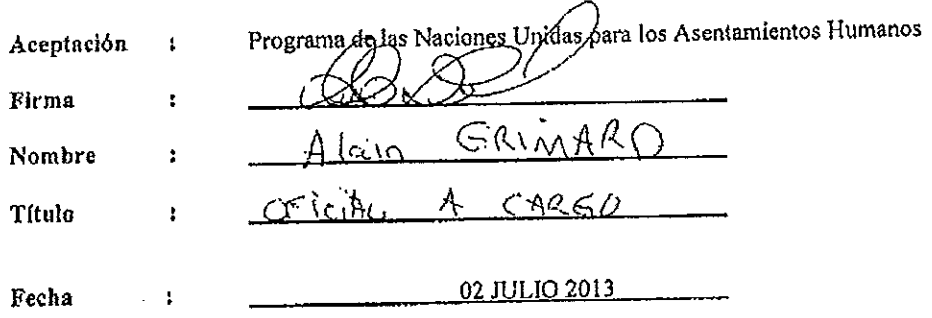 Aceptación : Programa de las Naciones Unidas para los Asentamientos Humanos
Firma :
Nombre : Alain GRIMARD
Título : OFiciAL A CARGO
Fecha : 02 JULIO 2013